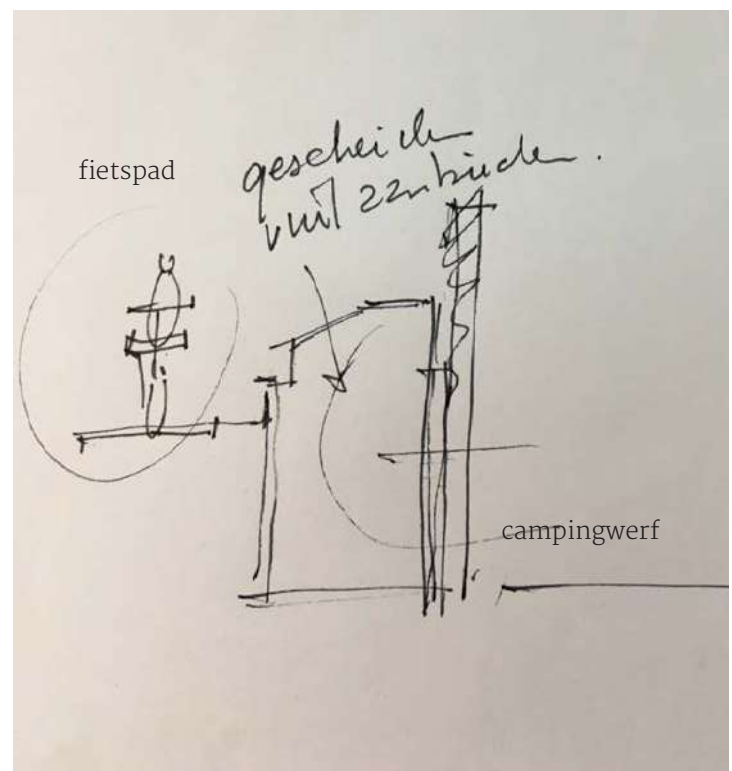 fietspad
gescheiden
vuil aanbieden.
campingwerf